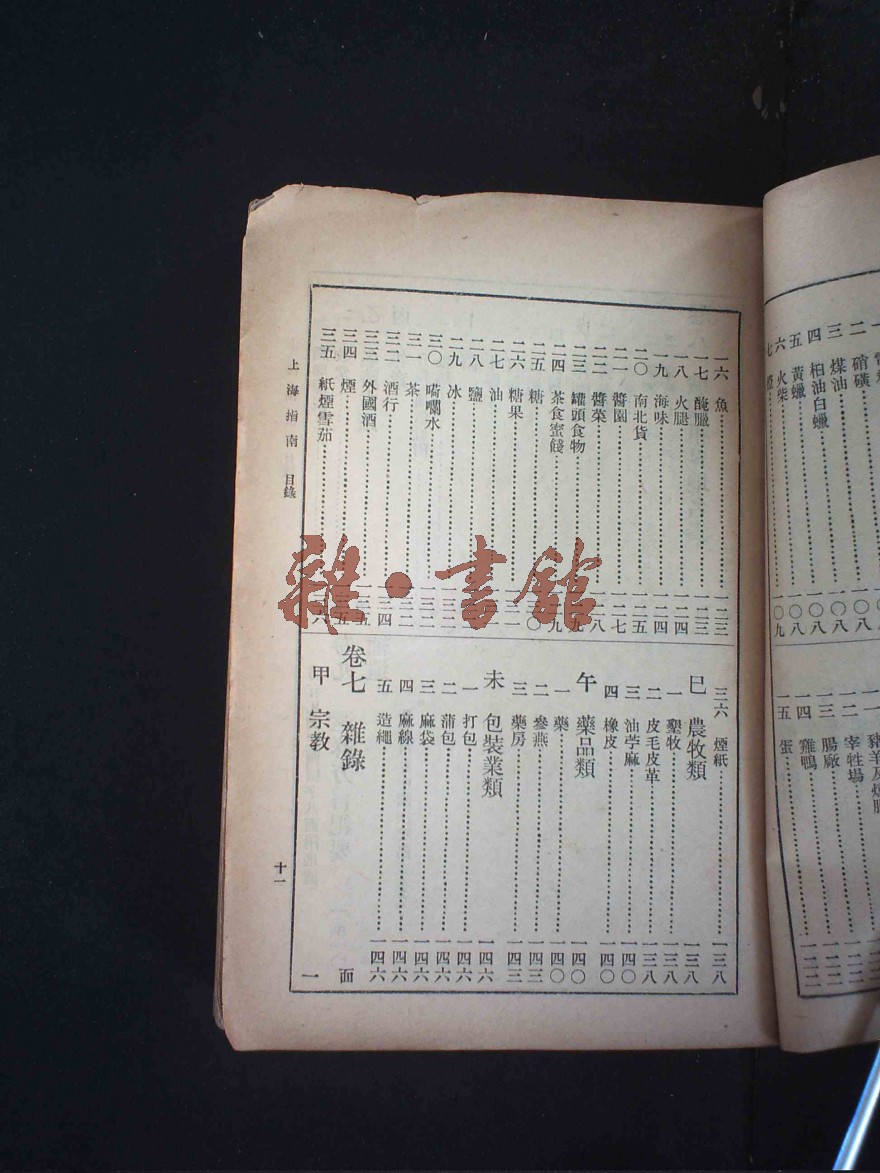 二 硝磺 一〇八
三 煤油 一〇八
四 柏油白蠟 一〇八
五 黃蠟 一〇八
六 火柴
七
一二 宰牲場
一三 腸廠
一四 雞鴨
一五 蛋
一六 魚 一二三
一七 醃臘 一二三
一八 火腿 一二四
一九 海味 一二四
二〇 南北貨 一二五
二一 醬園 一二七
二二 醬菜 一二八
二三 罐頭食物
二四 茶食蜜餞
二五 糖
二六 糖果
二七 油
二八 鹽
二九 冰
三〇 嗬囒水
三一 茶
三二 酒行 一二四
三三 外國酒 一二五
三四 煙 一二五
三五 紙煙雪茄
三六 煙紙 一三八
巳 農牧類 一三八
一 墾牧 一三八
二 皮毛皮革 一三八
三 油苧麻 一四〇
四 橡皮 一四〇
午 藥品類 一四〇
一 藥 一四〇
二 參燕 一四三
三 藥房 一四三
未 包裝業類 一四六
一 打包 一四六
二 蒲包 一四六
三 麻袋 一四六
四 麻線 一四六
五 造繩 一四六
卷七 雜錄 面
甲 宗教 一
上海指南 目錄 十一
雜·書館